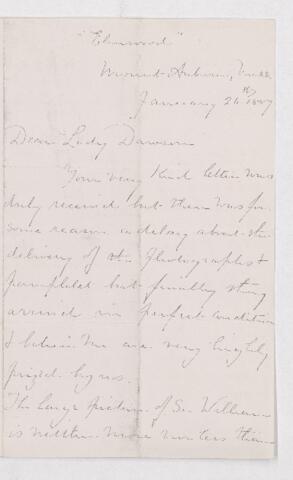 "Elmwood"
Mount Auburn, Mass
January 26th 1887
Dear Lady Dawson
Your very kind letter was
duly received but there was for
some reason a delay about the
delivery of the Photographs &
pamphlet but finally they
arrived in perfect condition
& both are very highly
prized by us.
The large picture of Sir William
is neither more nor less than